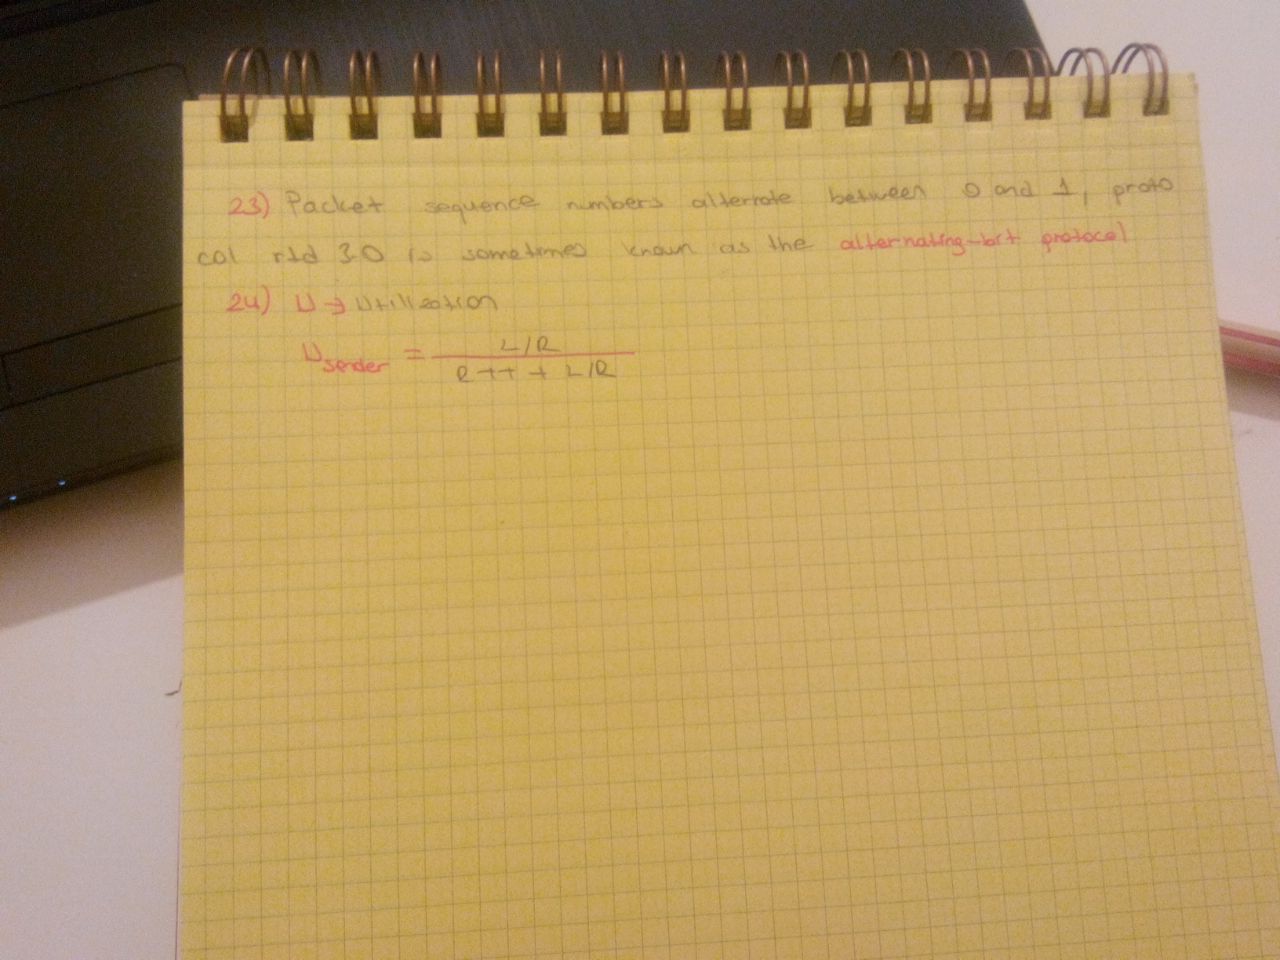 23) Packet sequence numbers alternate between 0 and 1, proto
col rtd 3.0 is sometimes known as the alternating-bit protocol
24) U → Utilization
U sender = L/R
RTT + L/R